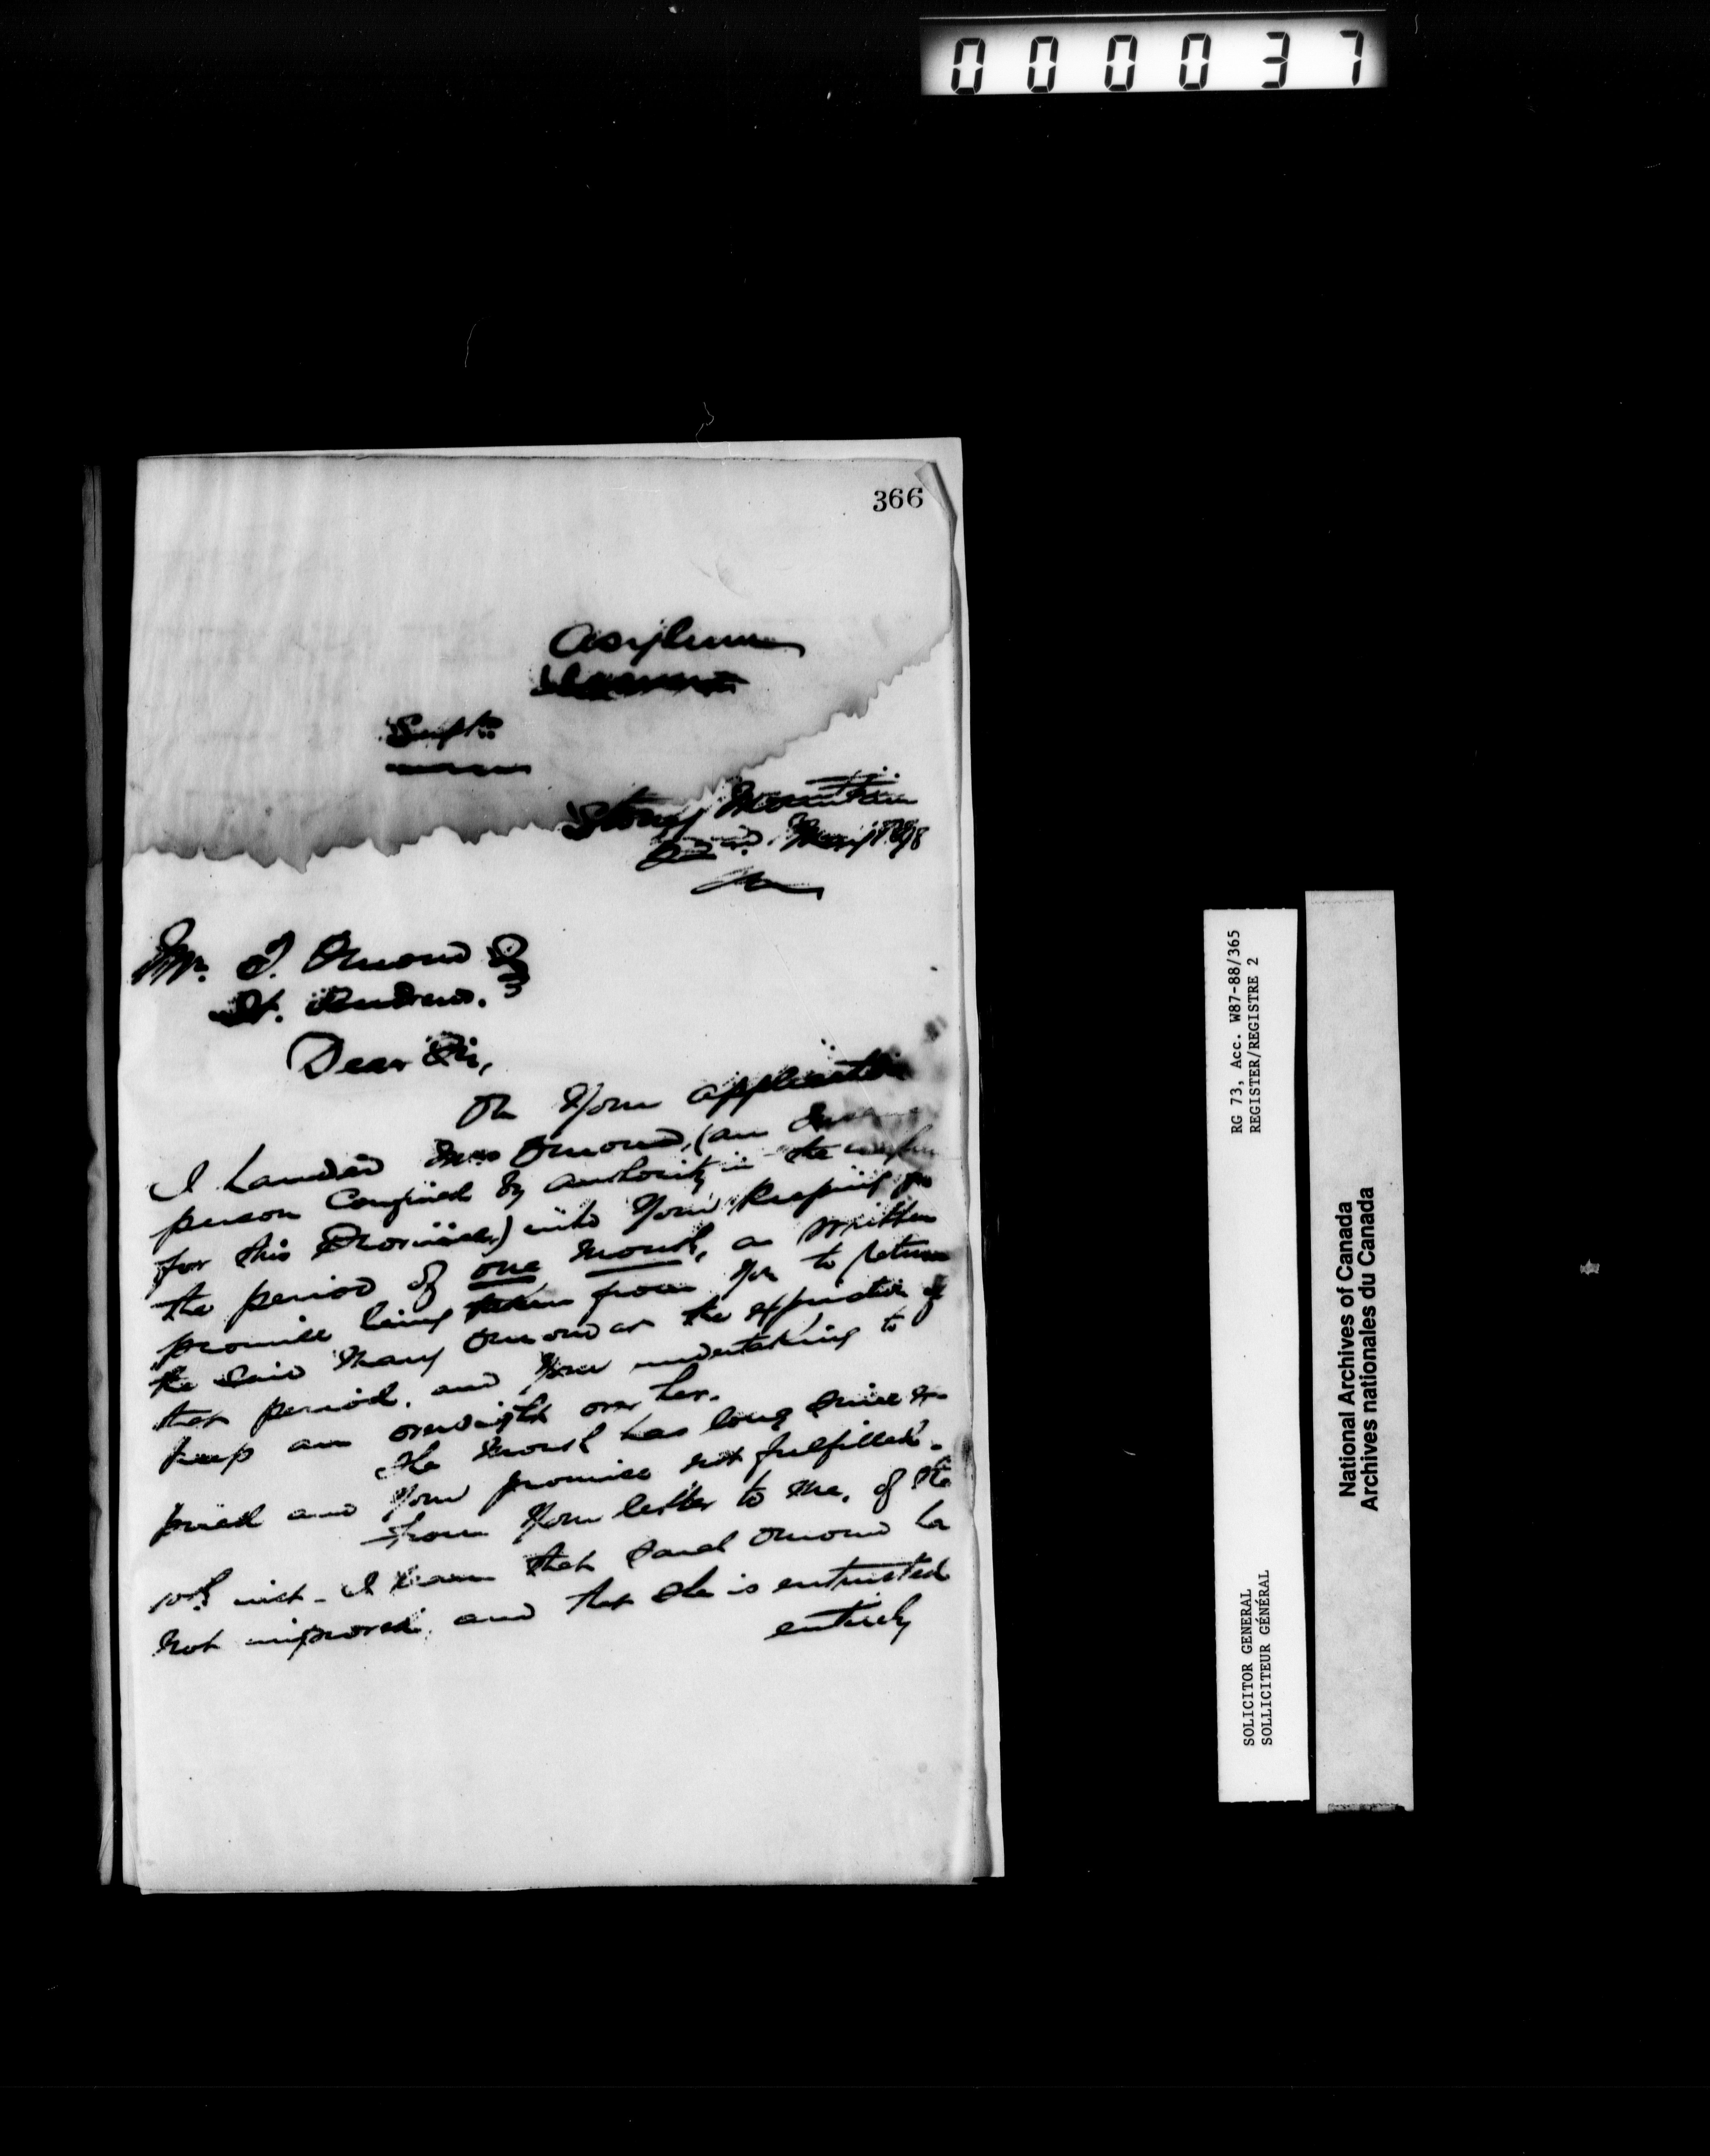 000037
366
Asylum
Supt.
Stony Mountain
22nd May 1878
Mr. T. Omond
St. Andrews.
Dear Sir,
On your application
I handed Mrs Omond, (an Insane
person confined by authority in the asylum
for this Province) into your keeping for
the period of one month, a written
promise being taken from you to return
the said Mary Omond at the expiration of
that period, and your undertaking to
keep an oversight over her.
The month has long since ex-
pired and your promise not fulfilled.
From your letter to me, of the
10th inst. I learn that said Omond has
not improved, and that she is entrusted
entirely
RG 73, Acc. W87-88/365
REGISTER/REGISTRE 2
SOLICITOR GENERAL
SOLLICITEUR GÉNÉRAL
National Archives of Canada
Archives nationales du Canada